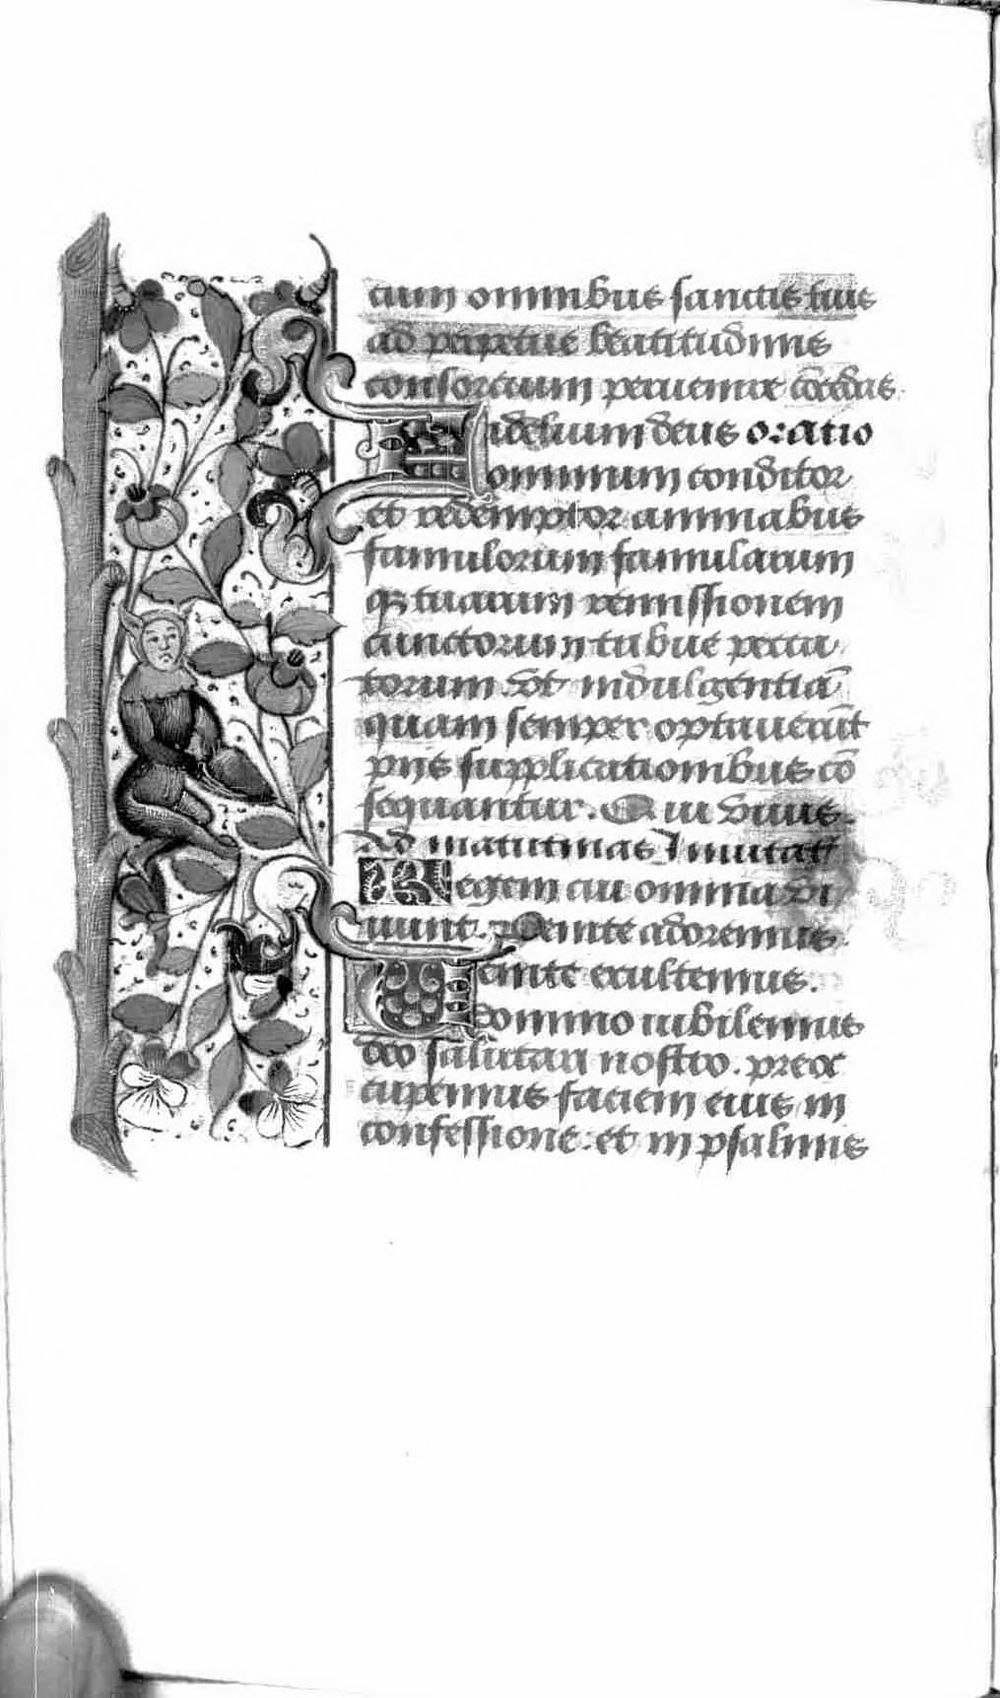 cum omnibus sanctis tuis
ad perpetue beatitudinis
consorcium peruenire cōcedas.
Fidelium deus oratio
omnium conditor
et redemptor animabus
famulorum famularum
qȝ tuarum remissionem
cunctorum tribue pecca
torum vt indulgentiā
quam semper optauerūt
pijs supplicationibus cō
sequantur. Qui viuis.
Ad matutinas Inuitatͫ
Regem cui omnia vi
uunt. Venite adoremus.
Uenite exultemus.
domino iubilemus
deo salutari nostro. preoc
cupemus faciem eius in
confessione: et in psalmis